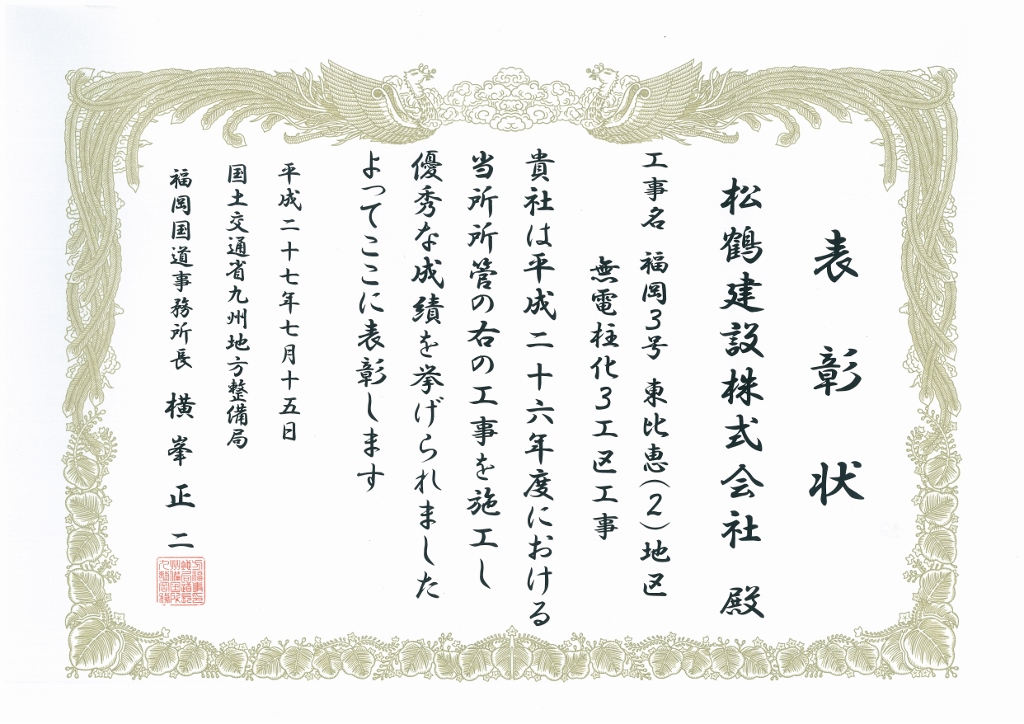 表彰状
松鶴建設株式会社 殿
工事名 福岡3号 東比恵(2)地区
無電柱化3工区工事
貴社は平成二十六年度における
当所所管の右の工事を施工し
優秀な成績を挙げられました
よってここに表彰します
平成二十七年七月十五日
国土交通省九州地方整備局
福岡国道事務所長 横峯正二